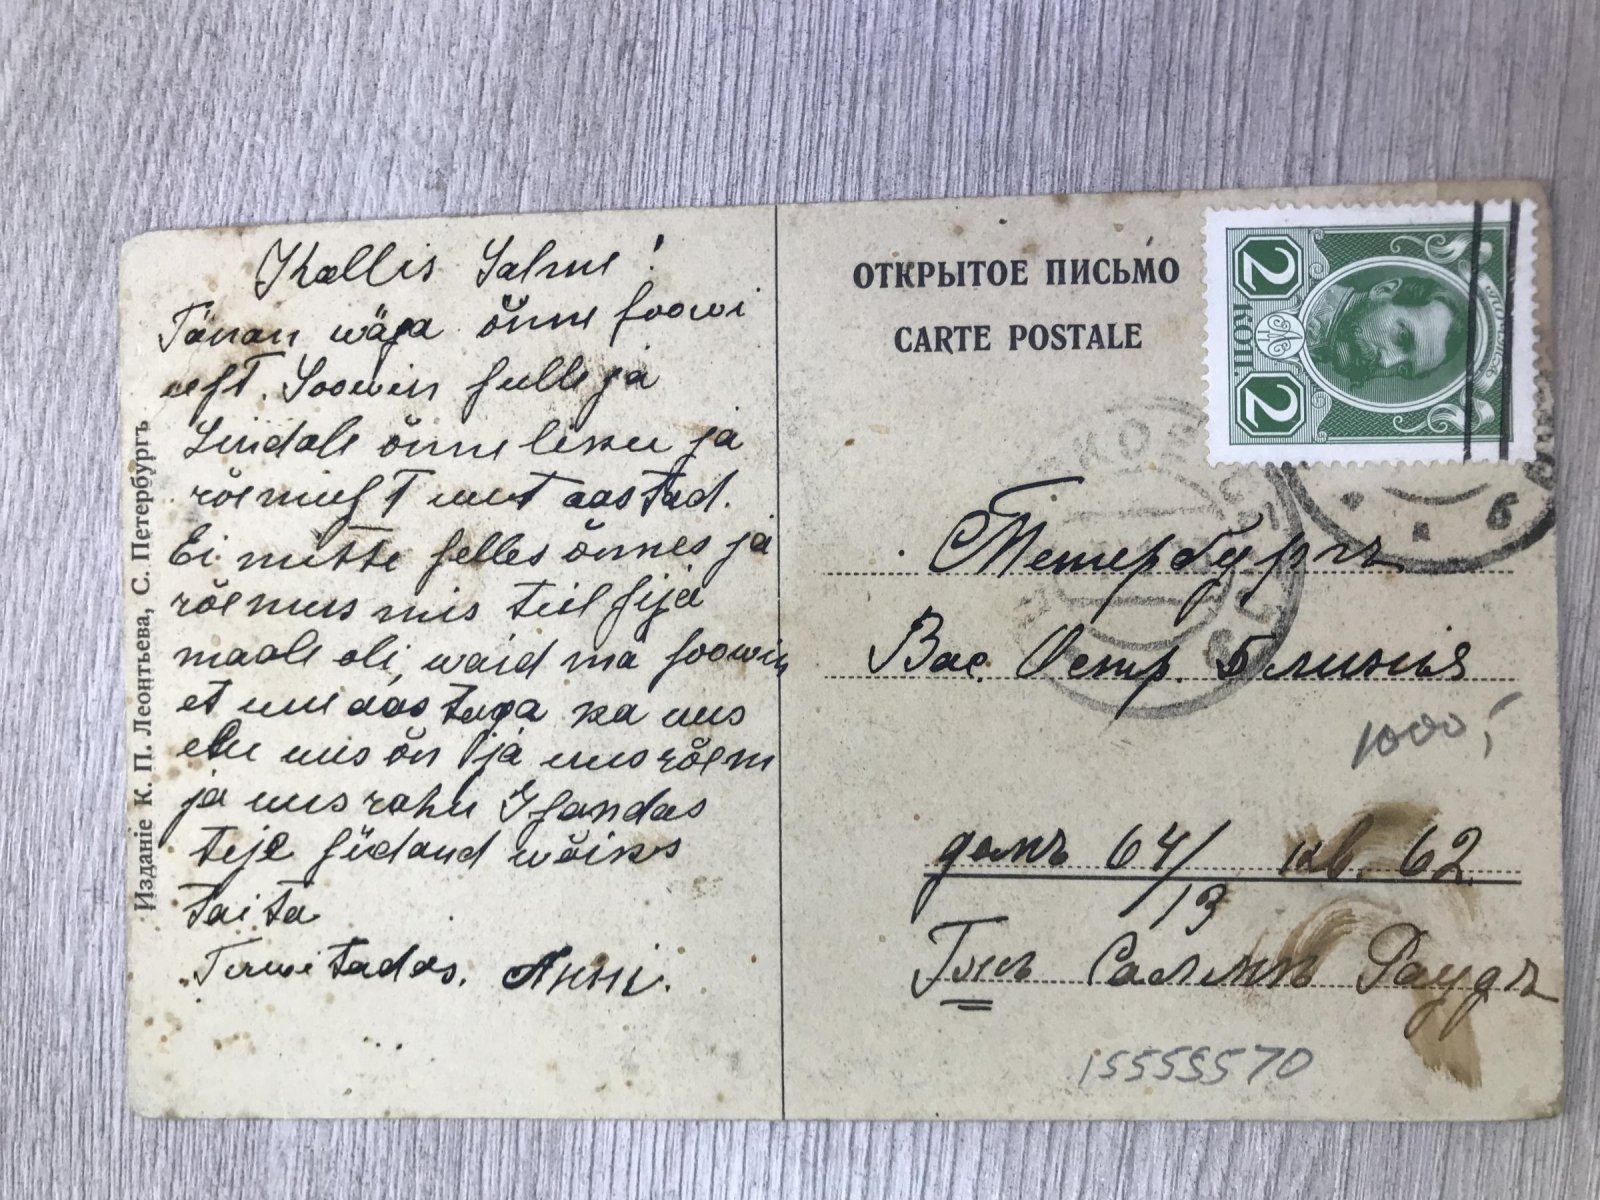 Kallis Salme!
Tänan wäga õnne soowi
eest. Soowin sulle ja
Lindale õnneliku ja
rõemust uut aastad.
Ei mitte selles õnnes ja
rõemus mis teil sija
maale oli, waid ma soowin
et uue aastaga ka uus
elu uus õn ja uus rõem
ja uus rahu Isandas
teje südand wõiks
taita
Terwitades. Анні.
Изданіе К. П. Леонтьева, С. Петербургъ
ОТКРЫТОЕ ПИСЬМО
CARTE POSTALE
2 КОП. 2
6
Петербургъ
Вас. Остр. 5 линія
1000,-
домъ 64/13 кв. 62
Гжъ Салмъ Раудъ
15555570